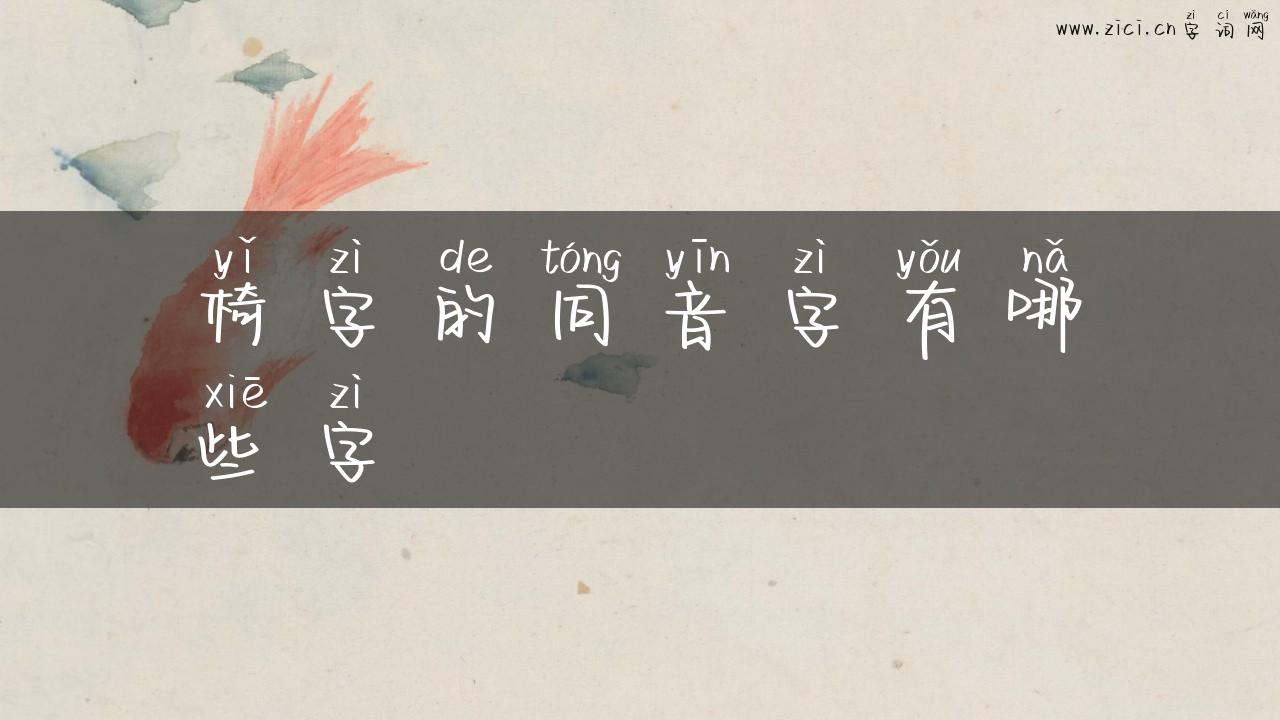 zì cí wǎng
www.zici.cn 字 词 网
yǐ zì de tóng yīn zì yǒu nǎ
椅 字 的 同 音 字 有 哪
xiē zì
些 字